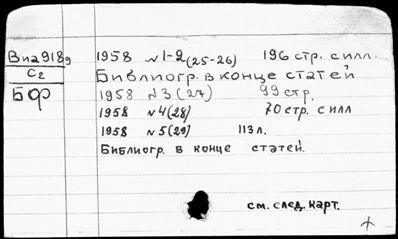 Виа918g 1958 №1-2(25-26) 196 стр. с илл.
C2 Библиогр. в конце статей
БФ 1958 №3(27) 99 стр.
1958 №4(28) 70 стр. с илл
1958 №5(29) 113 л.
Библиогр. в конце статей.
см. след. карт.